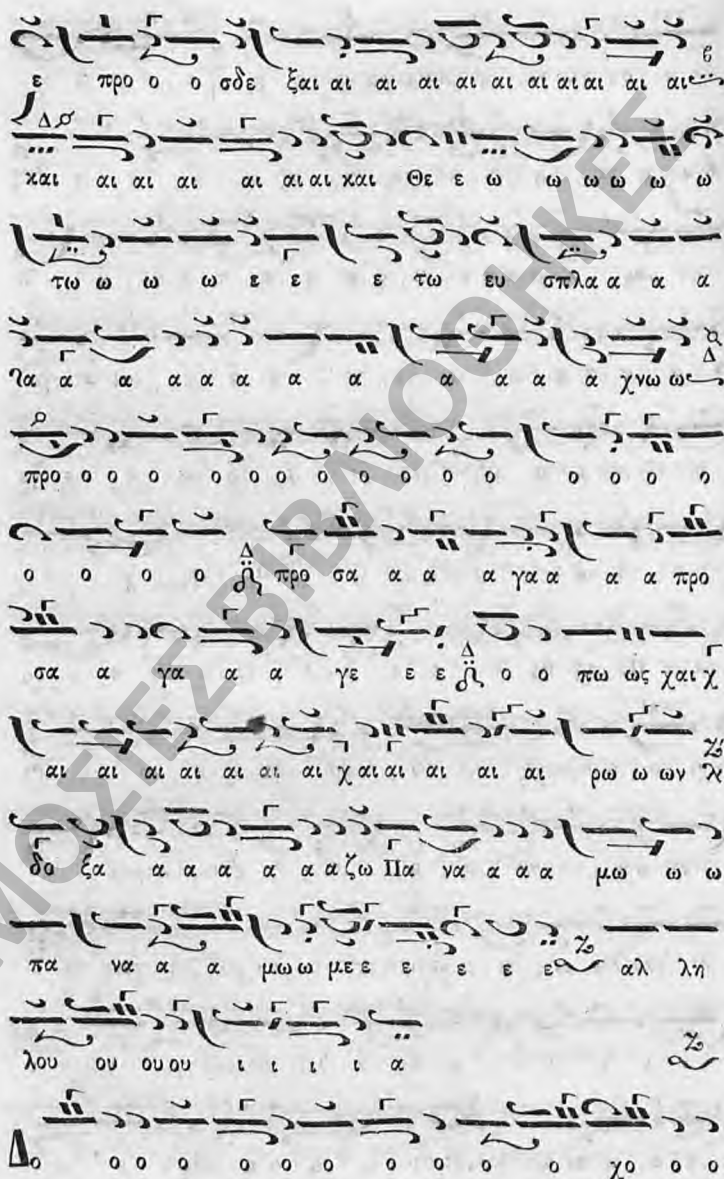 ε προ ο ο σδε ξαι αι αι αι αι αι αι αι αι αι αι
και αι αι αι αι αι αι και Θε ε ω ω ω ω ω ω
τω ω ω ω ε ε ε τω ευ σπλα α α α
α α α α α α α α α α α χνω ω
προ ο ο ο ο ο ο ο ο ο ο ο ο ο ο
ο ο ο ο προ σα α α α γα α α α προ
σα α γα α α γε ε ε ο ο πω ως χαι χ
αι αι αι αι αι αι αι χ αι αι αι αι αι ρω ω ων
δο ξα α α α α α α ζω Πα να α α α μω ω ω
πα να α α μω ω με ε ε ε ε ε αλ λη
λου ου ου ου ι ι ι ι α
Δο ο ο ο ο ο ο ο ο ο ο χο ο ο
ΔΗΜΟΣΙΕΣ ΒΙΒΛΙΟΘΗΚΕΣ